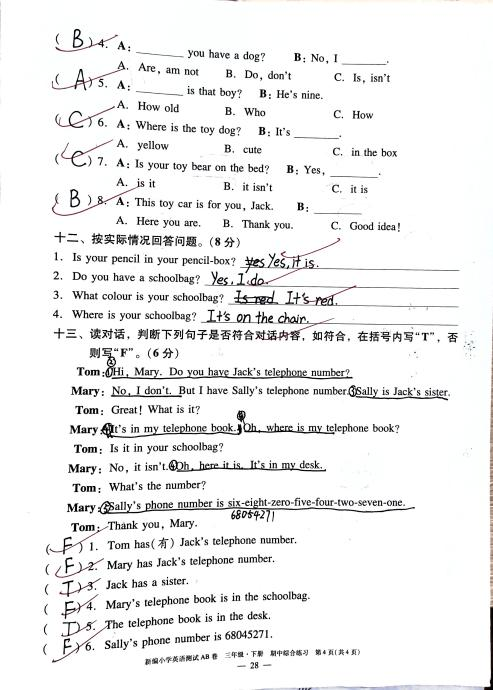 ( B ) 4. A: ________ you have a dog? B: No, I ________.
A. Are, am not B. Do, don't C. Is, isn't
( A ) 5. A: ________ is that boy? B: He's nine.
A. How old B. Who C. How
( C ) 6. A: Where is the toy dog? B: It's ________.
A. yellow B. cute C. in the box
( C ) 7. A: Is your toy bear on the bed? B: Yes, ________.
A. is it B. it isn't C. it is
( B ) 8. A: This toy car is for you, Jack. B: ________
A. Here you are. B. Thank you. C. Good idea!
十二、按实际情况回答问题。(8 分)
1. Is your pencil in your pencil-box? yes Yes, it is.
2. Do you have a schoolbag? Yes, I do.
3. What colour is your schoolbag? Is red It's red.
4. Where is your schoolbag? It's on the chair.
十三、读对话，判断下列句子是否符合对话内容，如符合，在括号内写“T”，否
则写“F”。(6 分)
Tom: ①Hi, Mary. Do you have Jack's telephone number?
Mary: No, I don't. But I have Sally's telephone number. ③Sally is Jack's sister.
Tom: Great! What is it?
Mary: It's in my telephone book. Oh, where is my telephone book?
Tom: Is it in your schoolbag?
Mary: No, it isn't. Oh, here it is. It's in my desk.
Tom: What's the number?
Mary: Sally's phone number is six-eight-zero-five-four-two-seven-one.
68054271
Tom: Thank you, Mary.
( F ) 1. Tom has(有) Jack's telephone number.
( F ) 2. Mary has Jack's telephone number.
( T ) 3. Jack has a sister.
( F ) 4. Mary's telephone book is in the schoolbag.
( T ) 5. The telephone book is in the desk.
( F ) 6. Sally's phone number is 68045271.
新编小学英语测试AB卷 三年级·下册 期中综合练习 第4页(共4页)
— 28 —